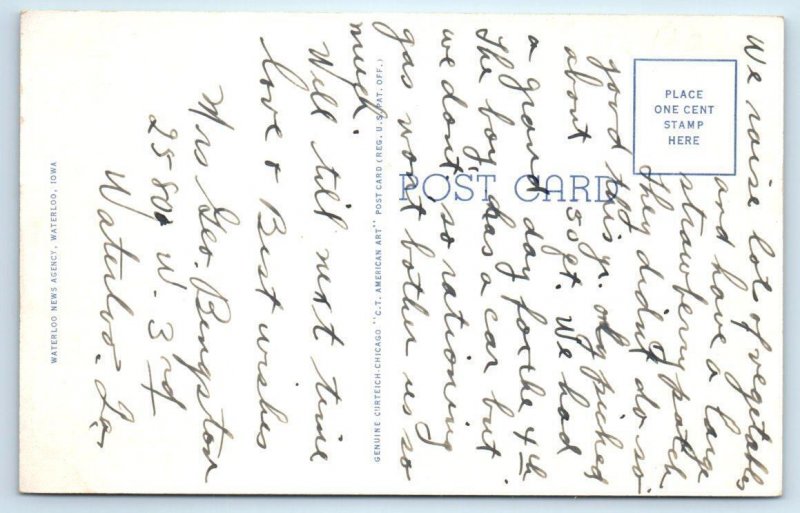 We raise lot of vegetables
and have a large
strawberry patch
they didnt do so
good this yr. only picked
about 50 qt. We had
a grand day for the 4th
The boy has a car but
we dont, so rationing
gas won't bother us so
much.
Will till next time
love & Best wishes
Mrs Geo. Bengston
25800 W. 3rd
Waterloo. Ia,
PLACE
ONE CENT
STAMP
HERE
POST CARD
GENUINE CURTEICH-CHICAGO "C.T. AMERICAN ART" POST CARD (REG. U.S. PAT. OFF.)
WATERLOO NEWS AGENCY, WATERLOO, IOWA